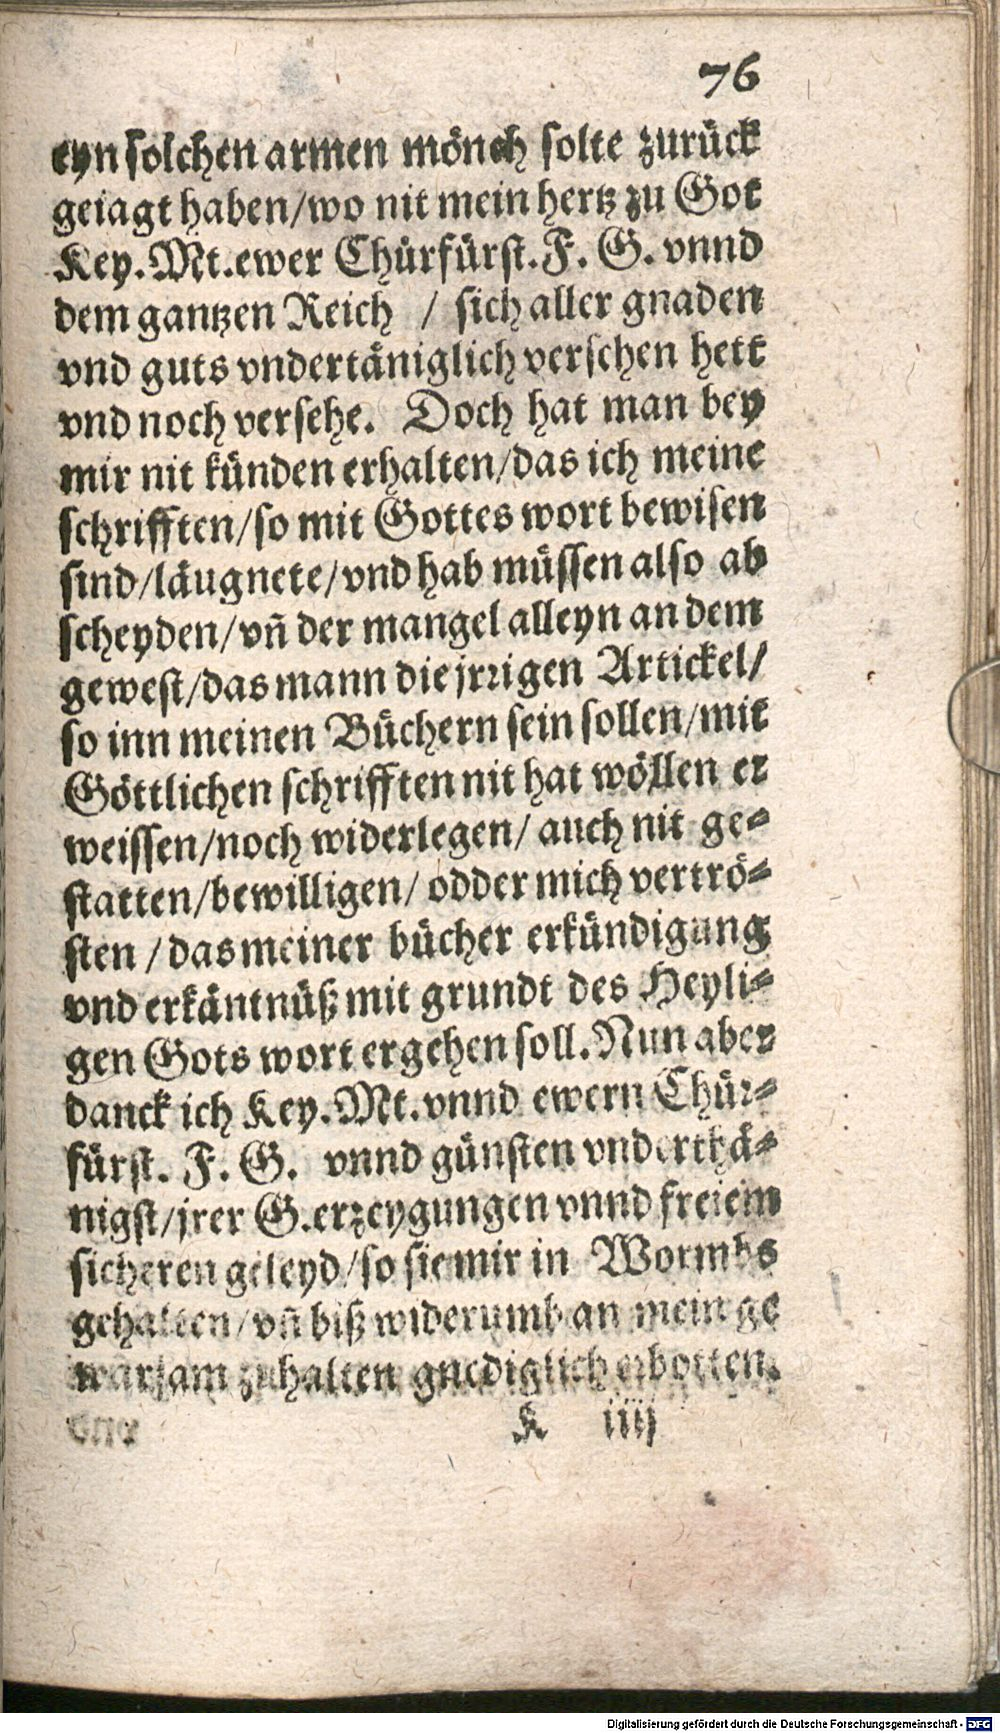 76
eyn solchen armen mönch solte zurück
geiagt haben/wo nit mein hertz zu Got
Key. Mt. ewer Chürfürst. F. G. vnnd
dem gantzen Reich / sich aller gnaden
vnd guts vndertäniglich versehen hett
vnd noch versehe. Doch hat man bey
mir nit künden erhalten/das ich meine
schrifften/so mit Gottes wort bewisen
sind/läugnete/vnd hab müssen also ab
scheyden/vñ der mangel alleyn an dem
gewest/das mann die jrrigen Artickel/
so inn meinen Büchern sein sollen/mit
Göttlichen schrifften nit hat wöllen er
weissen/noch widerlegen/ auch nit ge=
statten/bewilligen/ odder mich vertrö=
sten /das meiner bücher erkündigung
vnd erkäntnüß mit grundt des Heyli=
gen Gots wort ergehen soll. Nun aber
danck ich Key. Mt. vnnd ewern Chür=
fürst. F. G. vnnd günsten vnderthä=
nigst/jrer G. erzeygungen vnnd freiem
sicheren geleyd/so sie mir in Wormbs
gehalten/vñ biß widerumb an mein ge
warsam zuhalten gnediglich erbotten.
K iiij
Digitalisierung gefördert durch die Deutsche Forschungsgemeinschaft - DFG